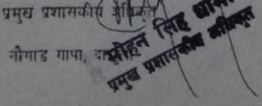 प्रमुख प्रशासकीय अधिकृत
नौगाड गापा, दा
मोहन सिंह धामी
प्रमुख प्रशासकीय अधिकृत